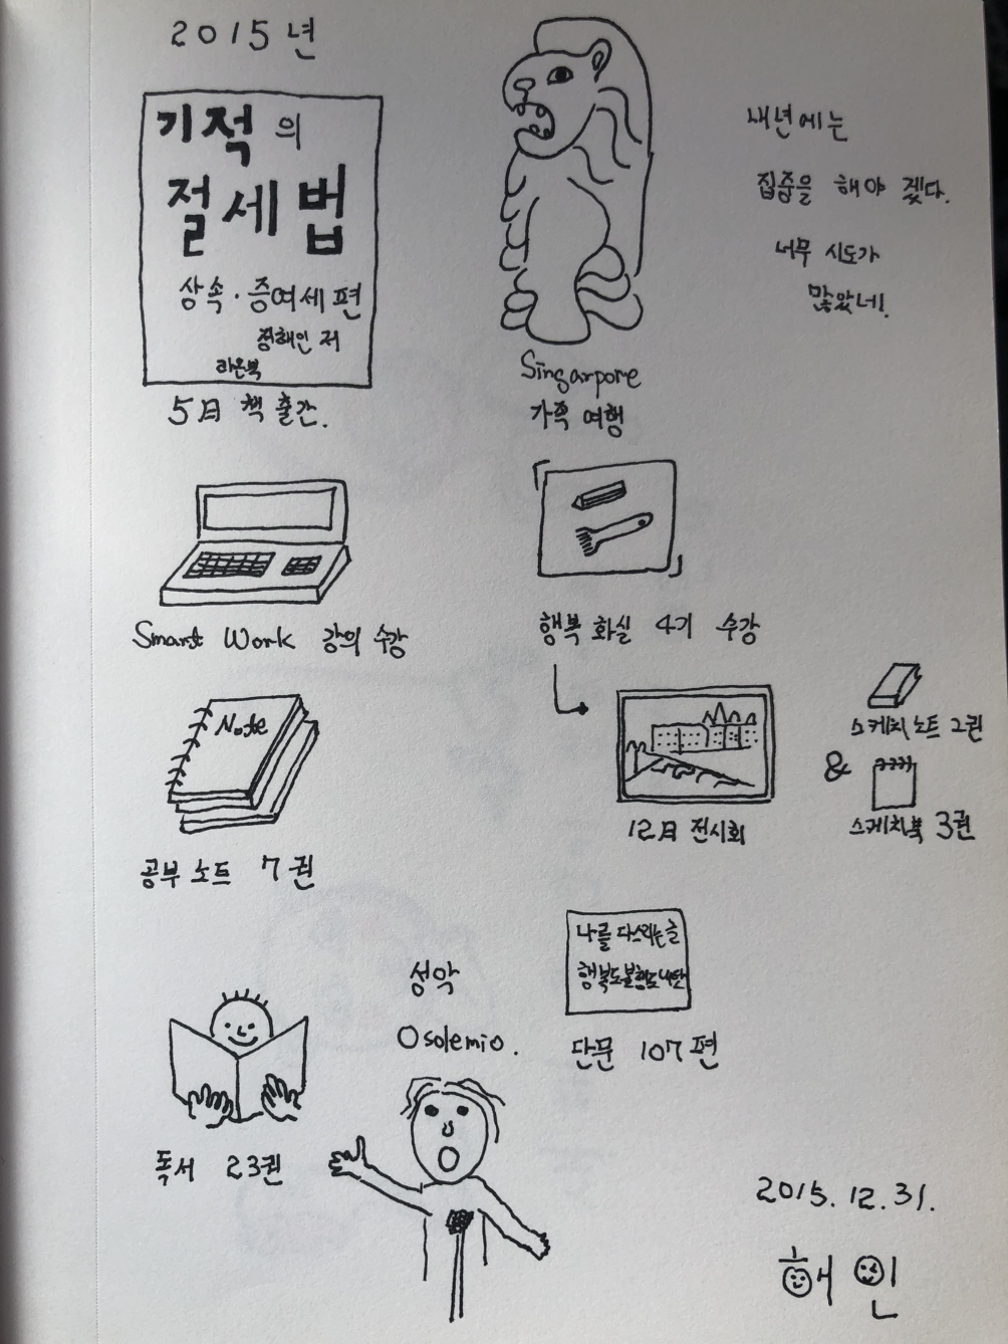 2015년
기적의
절세법
상속·증여세 편
정해인 저
라온북
5月 책 출간.
Singarpore
가족 여행
내년에는
집중을 해야 겠다.
너무 시도가
많았네!
Smart Work 강의 수강
행복 화실 4기 수강
Note
공부 노트 7권
12月 전시회
&
스케치 노트 2권
스케치북 3권
나를 다스리는 글
행복도 불행도
단문 107편
성악
Osolemio.
독서 23권
2015. 12. 31.
해인